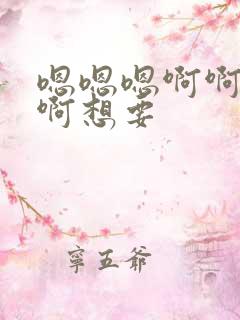 嗯嗯嗯啊啊
啊想要
寧五爺